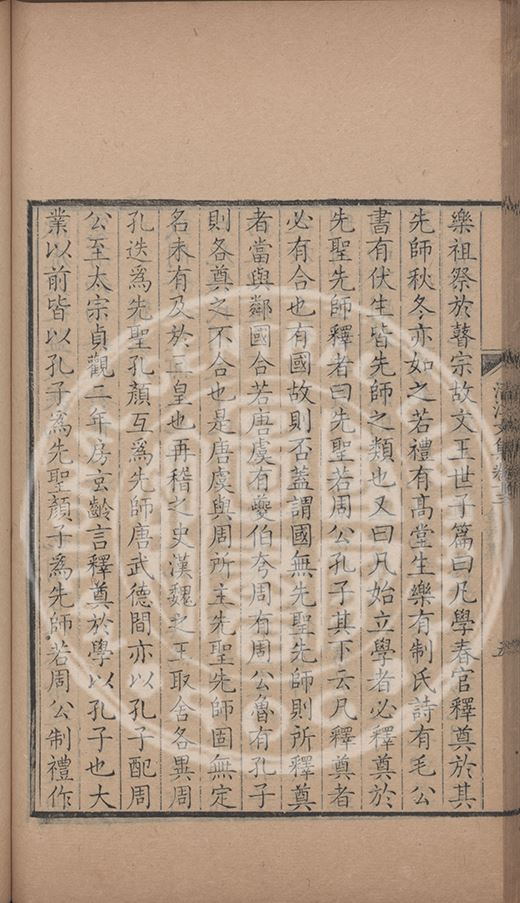 樂祖祭於瞽宗故文王世子篇曰凡學春官釋奠於其
先師秋冬亦如之若禮有髙堂生樂有制氏詩有毛公
書有伏生皆先師之類也又曰凡始立學者必釋奠於
先聖先師釋者曰先聖若周公孔子其下云凡釋奠者
必有合也有國故則否蓋謂國無先聖先師則所釋奠
者當與鄰國合若唐虞有夔伯夸周有周公魯有孔子
則各奠之不合也是唐虞與周所主先聖先師固無定
名未有及於三皇也再稽之史漢魏之王取舍各異周
孔迭爲先聖孔顏互爲先師唐武德間亦以孔子配周
公至太宗貞觀二年房玄齡言釋奠於學以孔子也大
業以前皆以孔子爲先聖顏子爲先師若周公制禮作
清江文集卷三